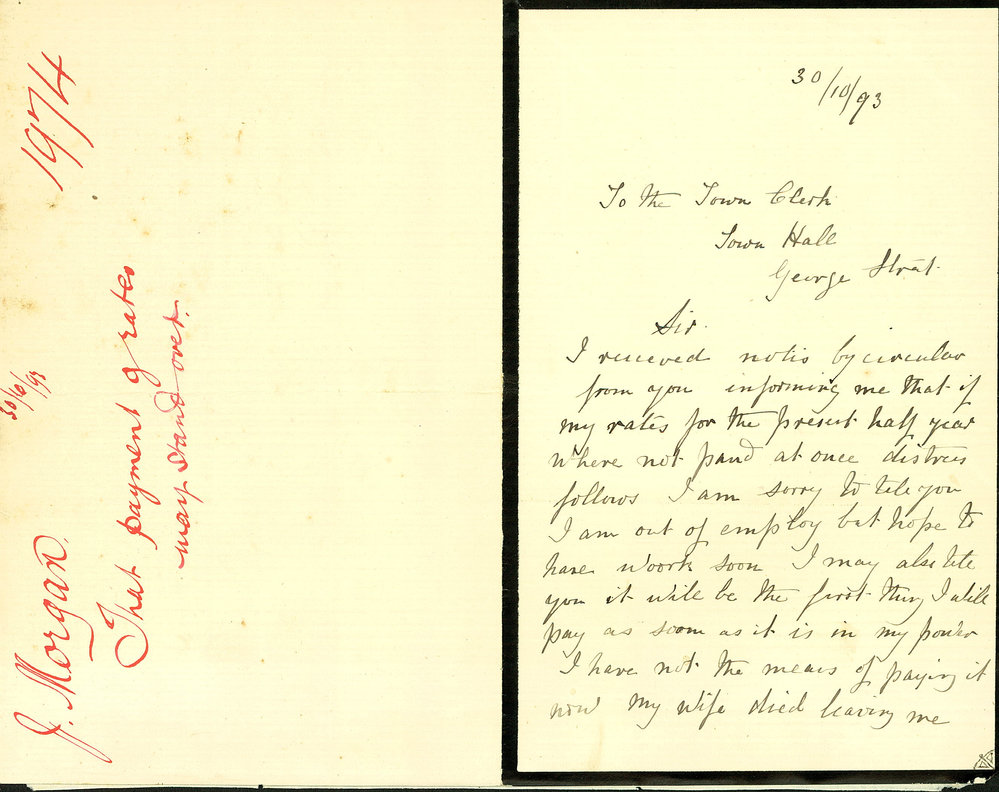 J. Morgan.
30/6/93
1974
That payment of rates
may stand over.
30/10/93
To the Town Clerk
Town Hall
George Strat.
Sir.
I receeved notis by circular
from you informing me that if
my rates for the present half year
where not paud at once distress
follows I am sorry to tele you
I am out of employ but hope to
have woork soon I may also tele
you it wile be the first thing I wile
pay as soon as it is in my power
I have not the means of paying it
now my wife died leaving me